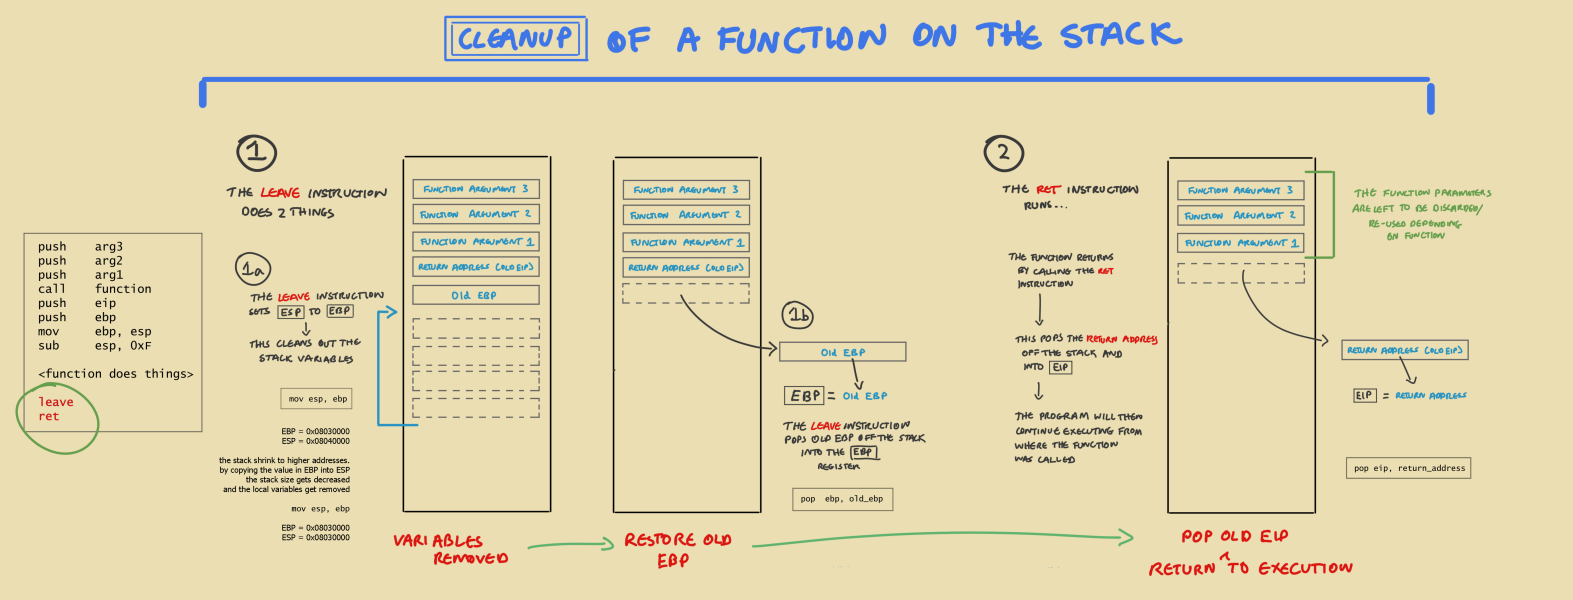 CLEANUP OF A FUNCTION ON THE STACK
push arg3
push arg2
push arg1
call function
push eip
push ebp
mov ebp, esp
sub esp, 0xF
<function does things>
leave
ret
1
THE LEAVE INSTRUCTION
DOES 2 THINGS
1a
THE LEAVE INSTRUCTION
SETS ESP TO EBP
THIS CLEANS OUT THE
STACK VARIABLES
mov esp, ebp
EBP = 0x08030000
ESP = 0x08040000
the stack shrink to higher addresses.
by copying the value in EBP into ESP
the stack size gets decreased
and the local variables get removed
mov esp, ebp
EBP = 0x08030000
ESP = 0x08030000
FUNCTION ARGUMENT 3
FUNCTION ARGUMENT 2
FUNCTION ARGUMENT 1
RETURN ADDRESS (OLD EIP)
Old EBP
VARIABLES
REMOVED
FUNCTION ARGUMENT 3
FUNCTION ARGUMENT 2
FUNCTION ARGUMENT 1
RETURN ADDRESS (OLD EIP)
RESTORE OLD
EBP
1b
Old EBP
EBP = Old EBP
THE LEAVE INSTRUCTION
POPS OLD EBP OFF THE STACK
INTO THE EBP
REGISTER
pop ebp, old_ebp
2
THE RET INSTRUCTION
RUNS...
THE FUNCTION RETURNS
BY CALLING THE RET
INSTRUCTION
THIS POPS THE RETURN ADDRESS
OFF THE STACK AND
INTO EIP
THE PROGRAM WILL THEN
CONTINUE EXECUTING FROM
WHERE THE FUNCTION
WAS CALLED
FUNCTION ARGUMENT 3
FUNCTION ARGUMENT 2
FUNCTION ARGUMENT 1
POP OLD EIP
RETURN TO EXECUTION
THE FUNCTION PARAMTERS
ARE LEFT TO BE DISCARDED/
RE-USED DEPENDING
ON FUNCTION
RETURN ADDRESS (OLD EIP)
EIP = RETURN ADDRESS
pop eip, return_address